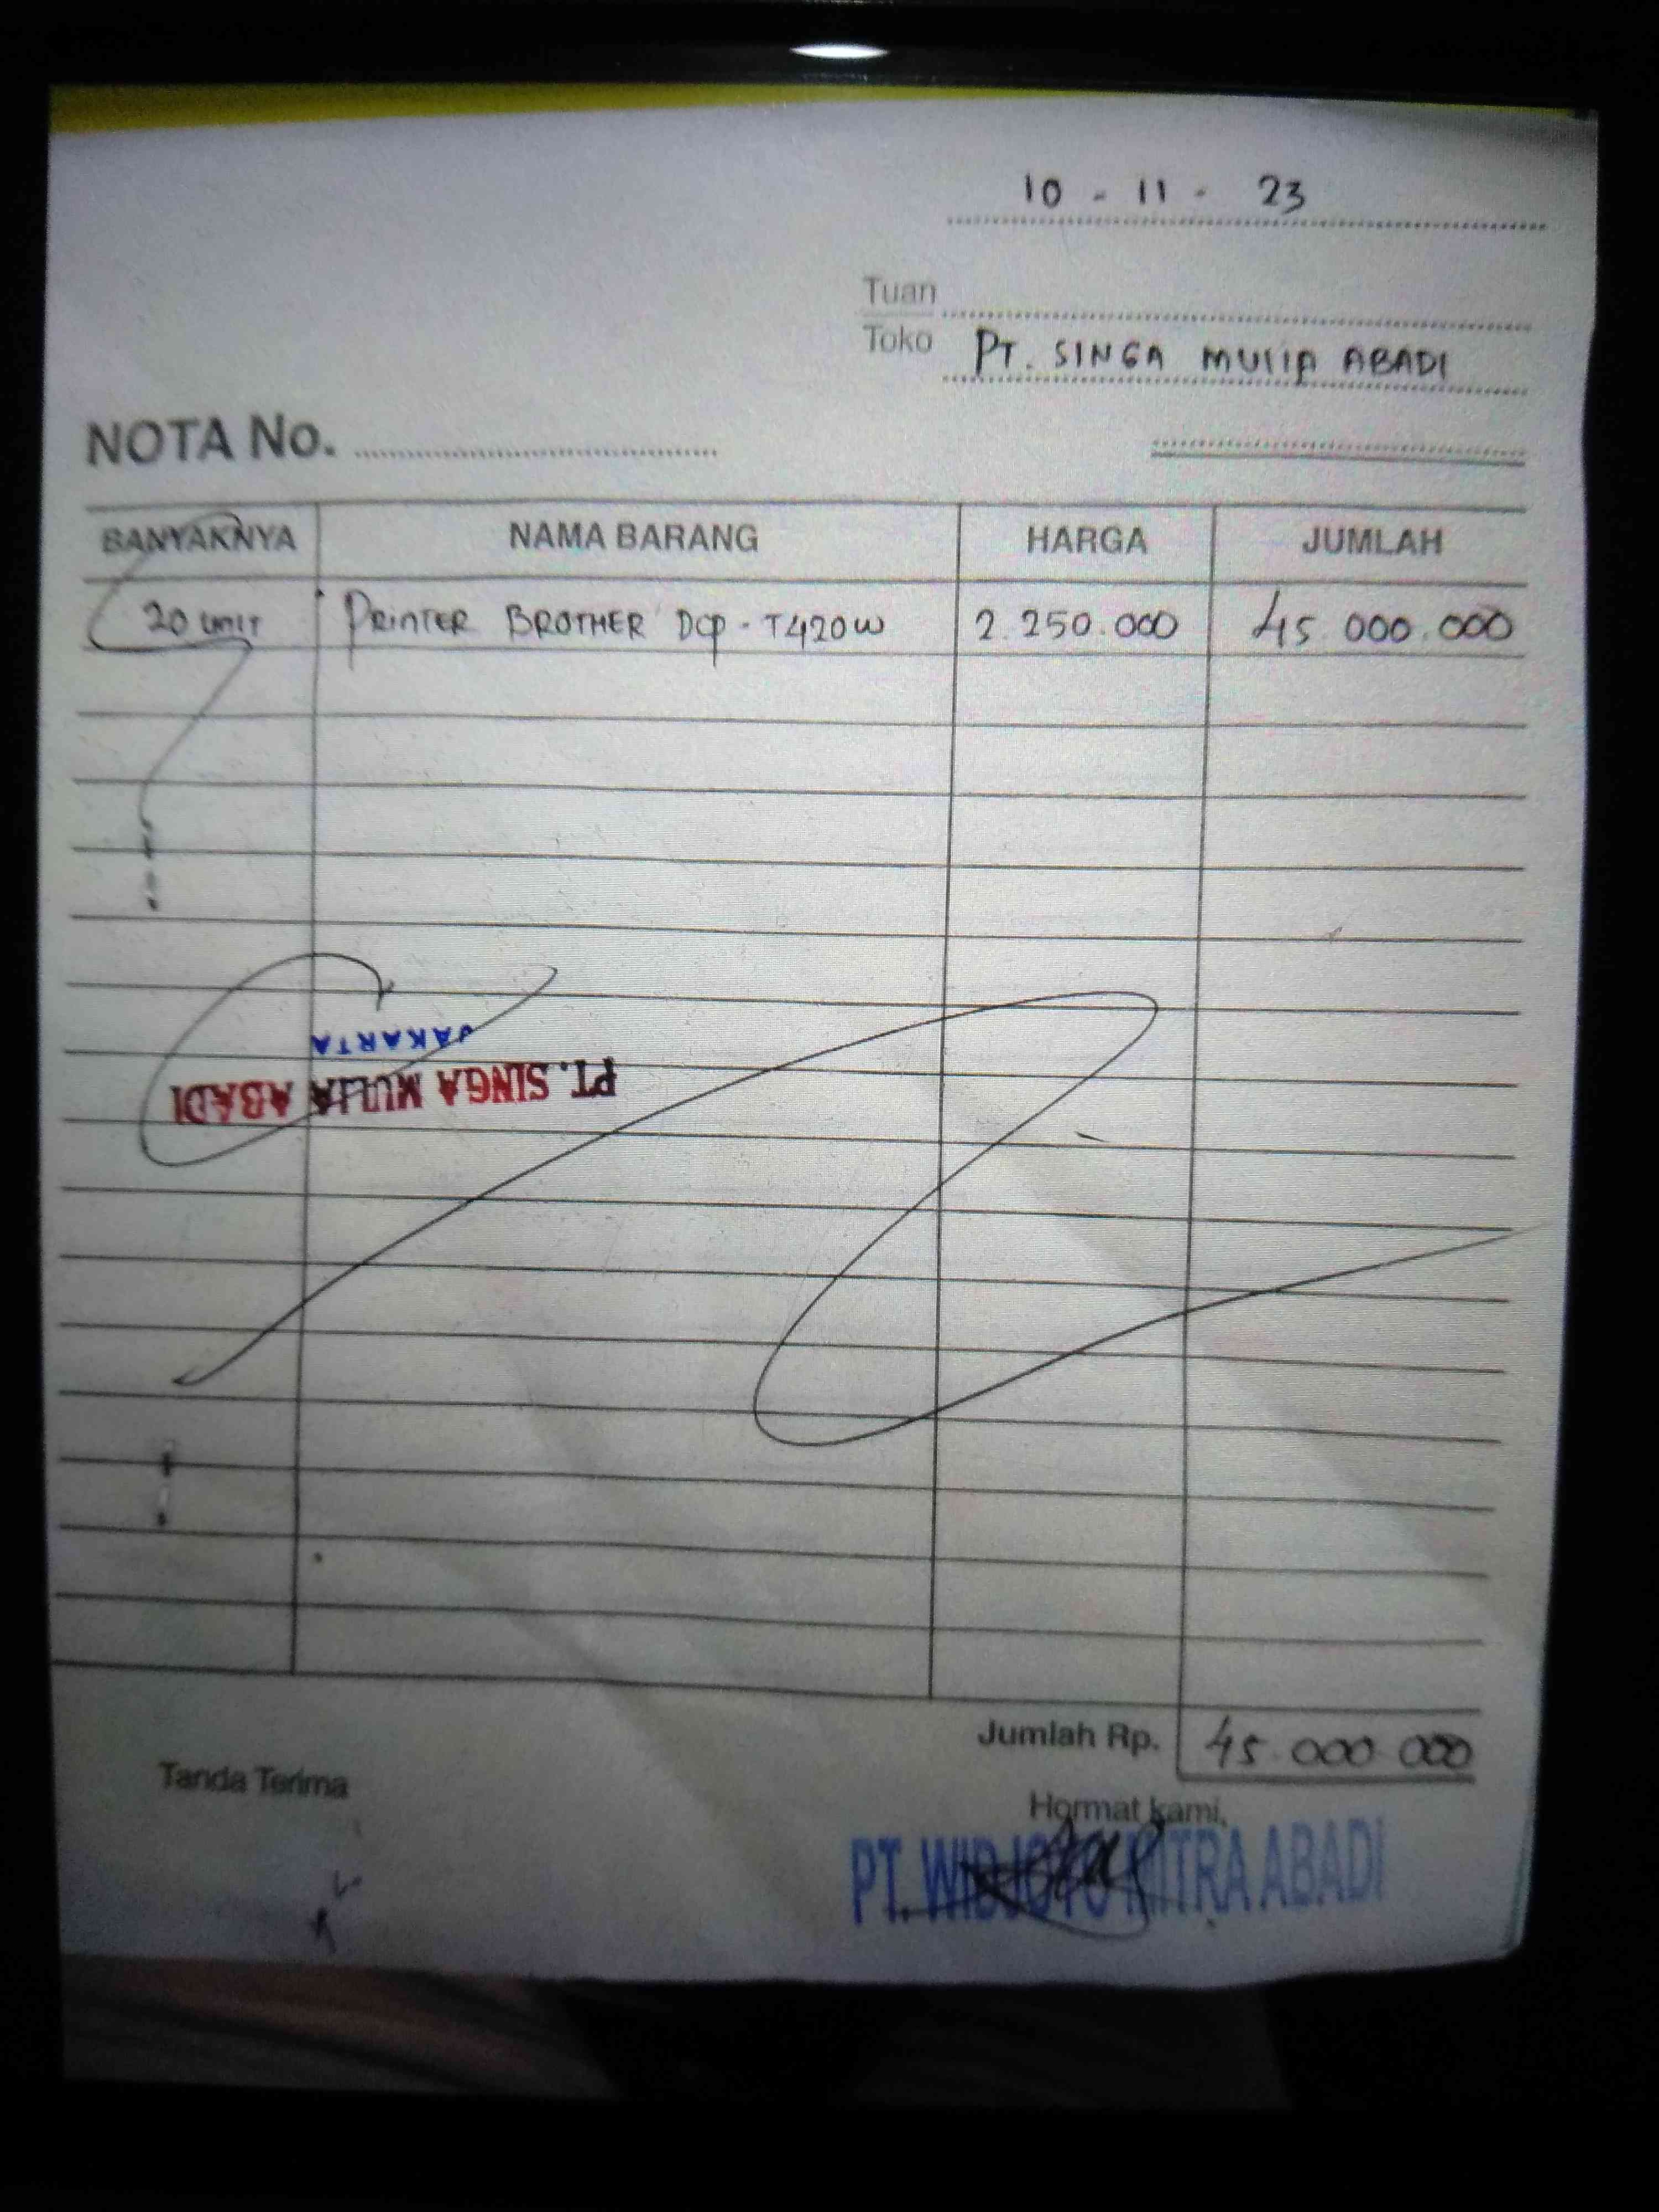 10 - 11 - 23
Tuan
Toko PT. SINGA MULIA ABADI
NOTA No.
BANYAKNYA NAMA BARANG HARGA JUMLAH
20 UNIT PRINTER BROTHER DCP - T420W 2.250.000 45.000.000
JAKARTA
PT. SINGA MULIA ABADI
Jumlah Rp. 45.000.000
Tanda Terima
Hormat kami,
PT. WIDJOYO MITRA ABADI